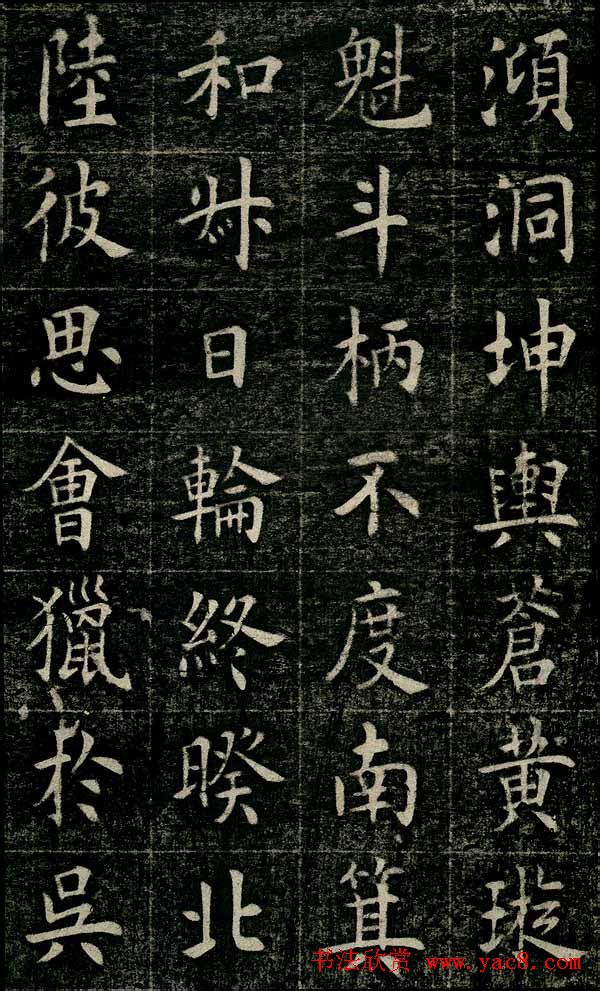 澒洞坤輿蒼黃璇
魁斗柄不度南箕
和叔日輪終暌北
陸彼思會獵於吳
书法欣赏 www.yac8.com